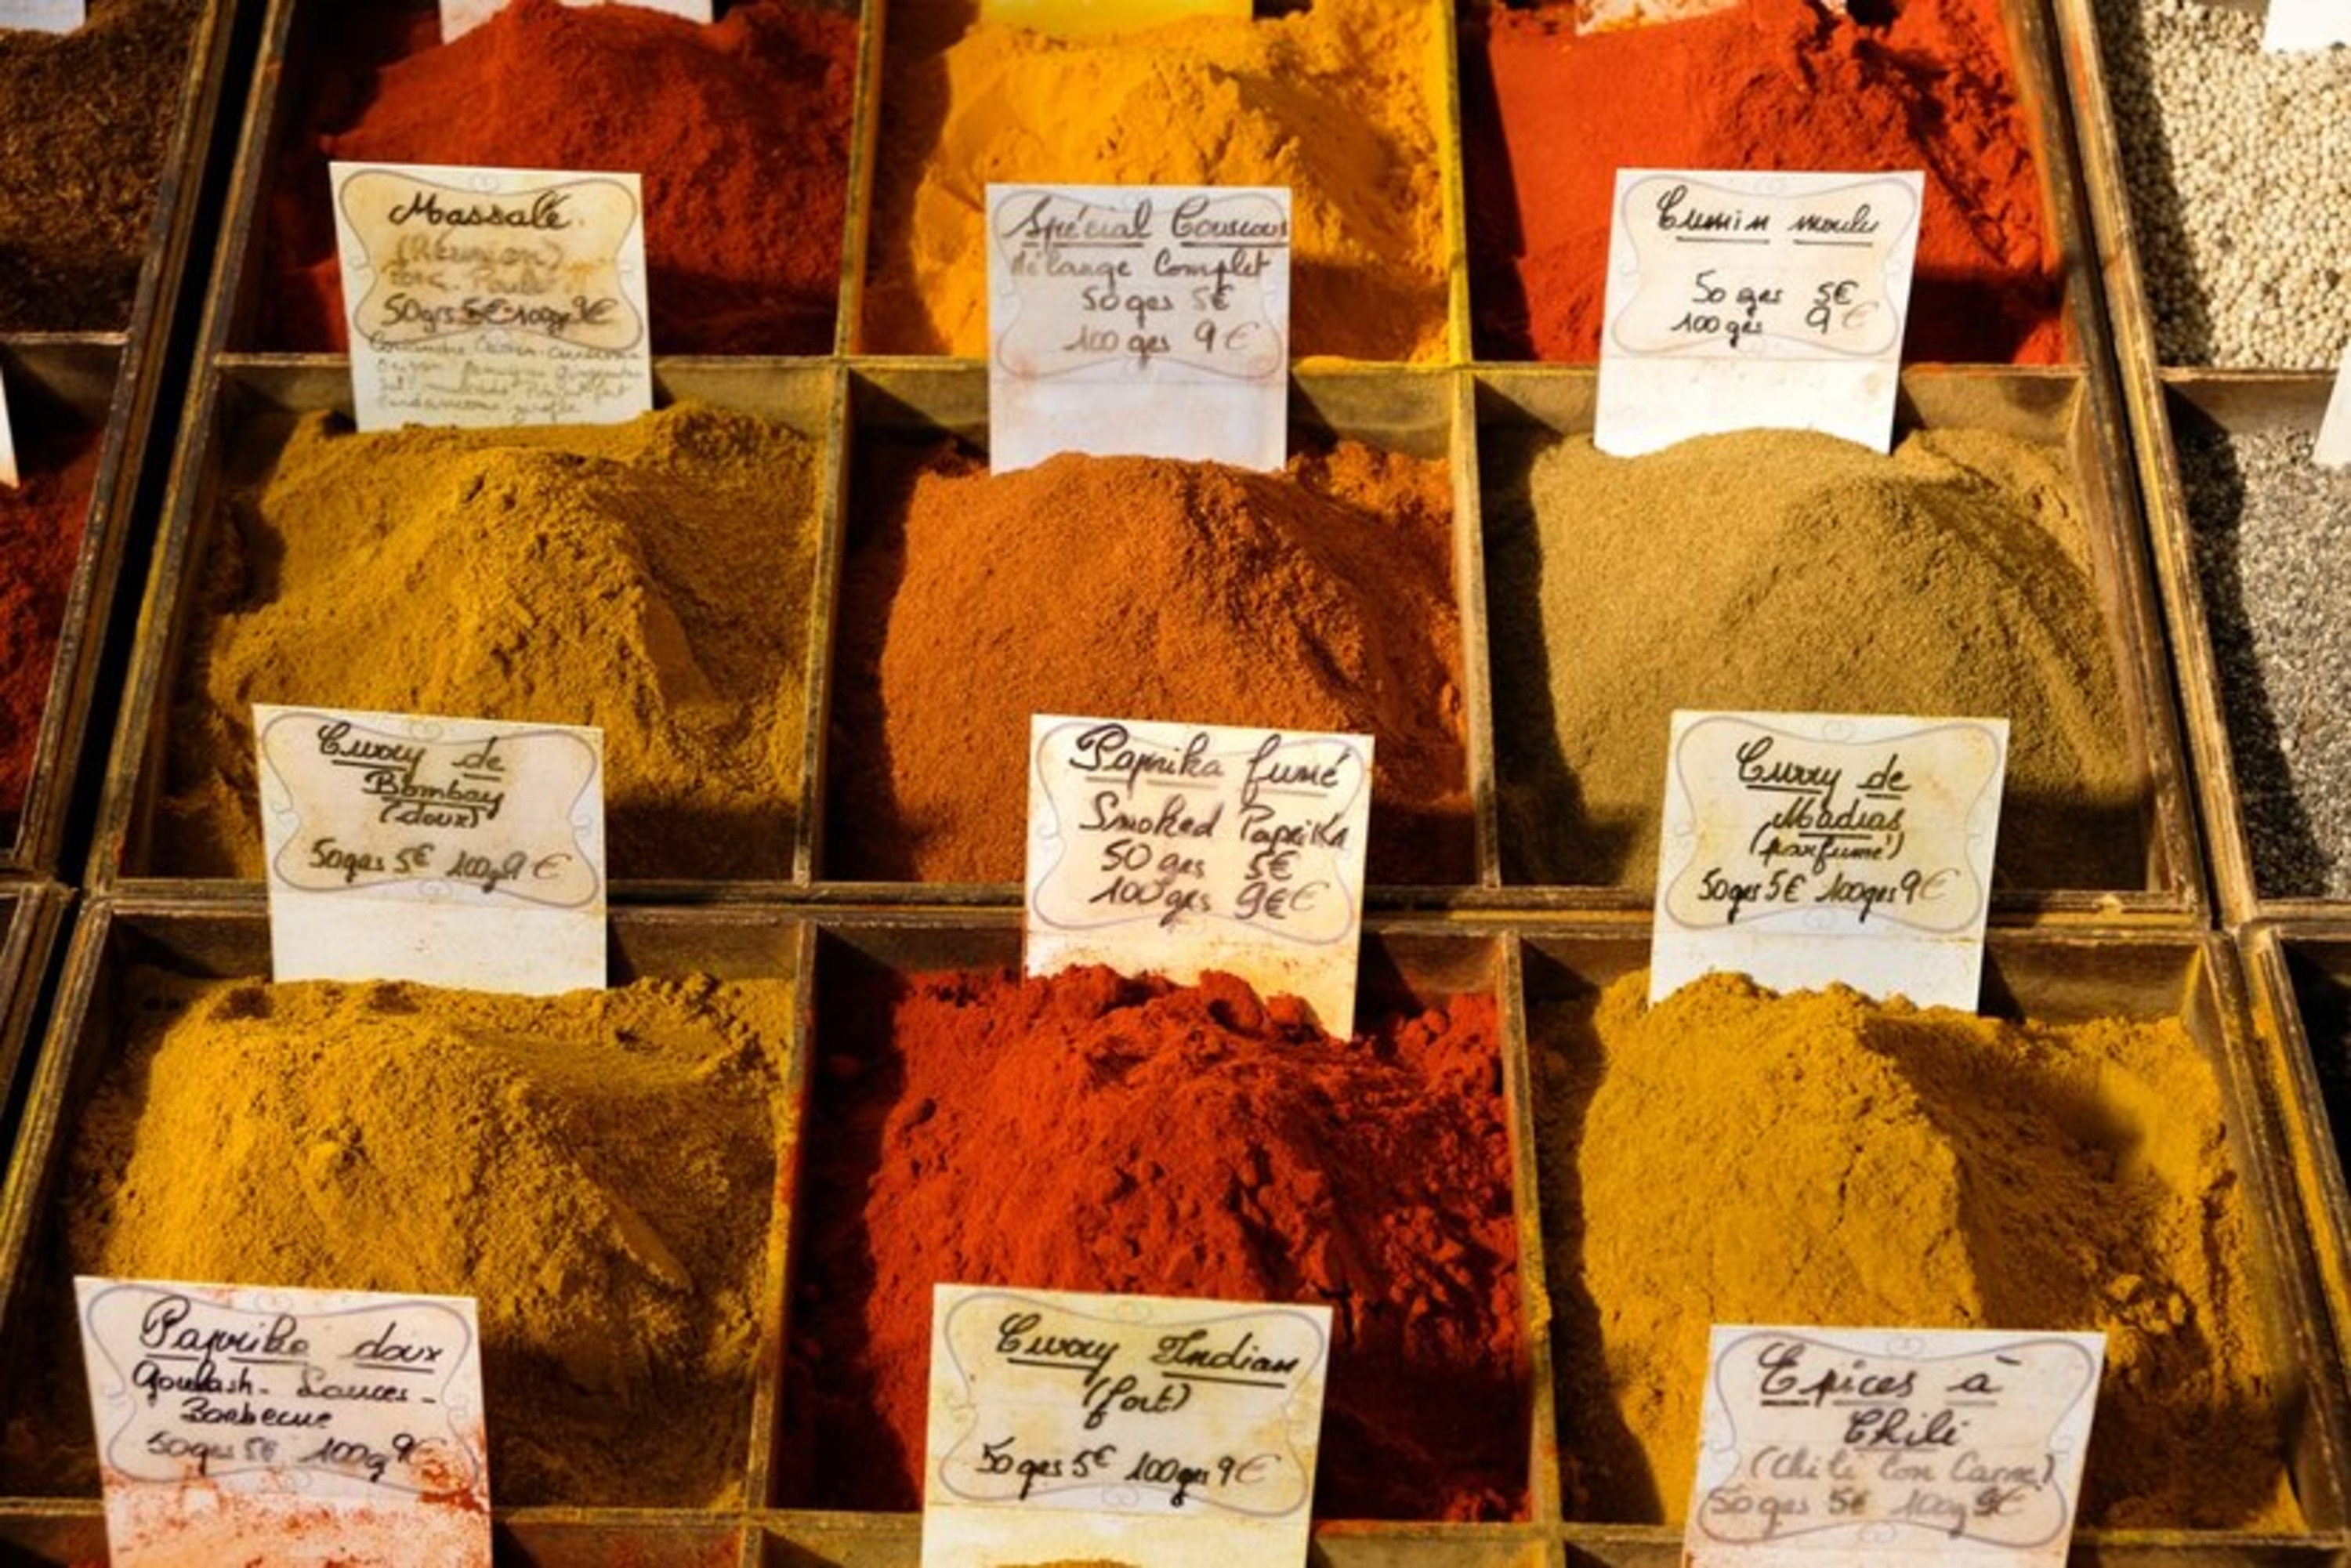 Massalé
(Réunion)
50grs 5€ 100gr 9€
Spécial Couscous
Mélange Complet
50 grs 5€
100 grs 9€
Cumin moulu
50 grs 5€
100 grs 9€
Curry de
Bombay
(doux)
50grs 5€ 100g 9€
Paprika fumé
Smoked Paprika
50 grs 5€
100 grs 9€€
Curry de
Madras
(parfumé)
50grs 5€ 100grs 9€
Paprika doux
Goulash - Sauces -
Barbecue
50grs 5€ 100g 9€
Curry Indian
(fort)
50grs 5€ 100grs 9€
Epices à
Chili
(Chili Con Carne)
50grs 5€ 100g 9€